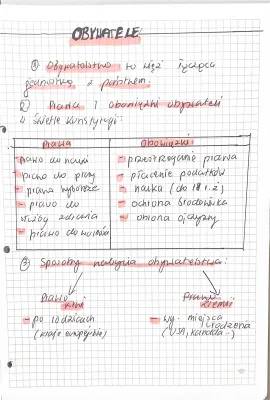 OBYWATELE:
① Obywatelstwo to więź łącząca
jednostkę z państwem.
② Prawa i obowiązki obywateli
w świetle konstytucji:
Prawa
- prawo do nauki
- prawo do pracy
- prawa wyborcze
- prawo do
służby zdrowia
- prawo do
Obowiązki
- przestrzeganie prawa
- płacenie podatków
- nauka (do 18 r.ż)
- ochrona środowiska
- obrona ojczyzny
③ Sposoby nabycia obywatelstwa:
Prawo
krwi
- po rodzicach
(kraje europejskie)
Prawo
ziemi
- wg. miejsca
urodzenia
(USA, Kanada..)